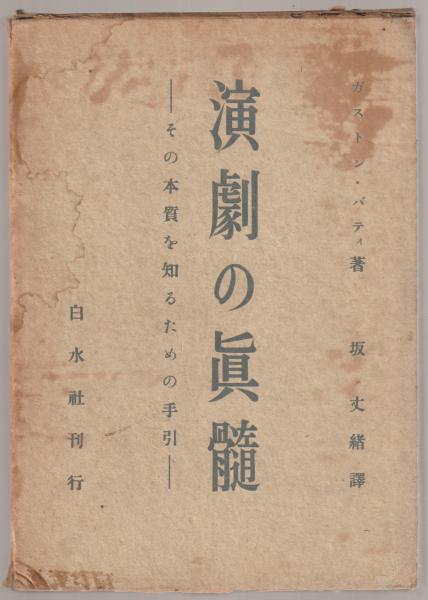 ガストン・バティ著　坂丈緒譯
演劇の眞髓
――その本質を知るための手引――
白水社刊行